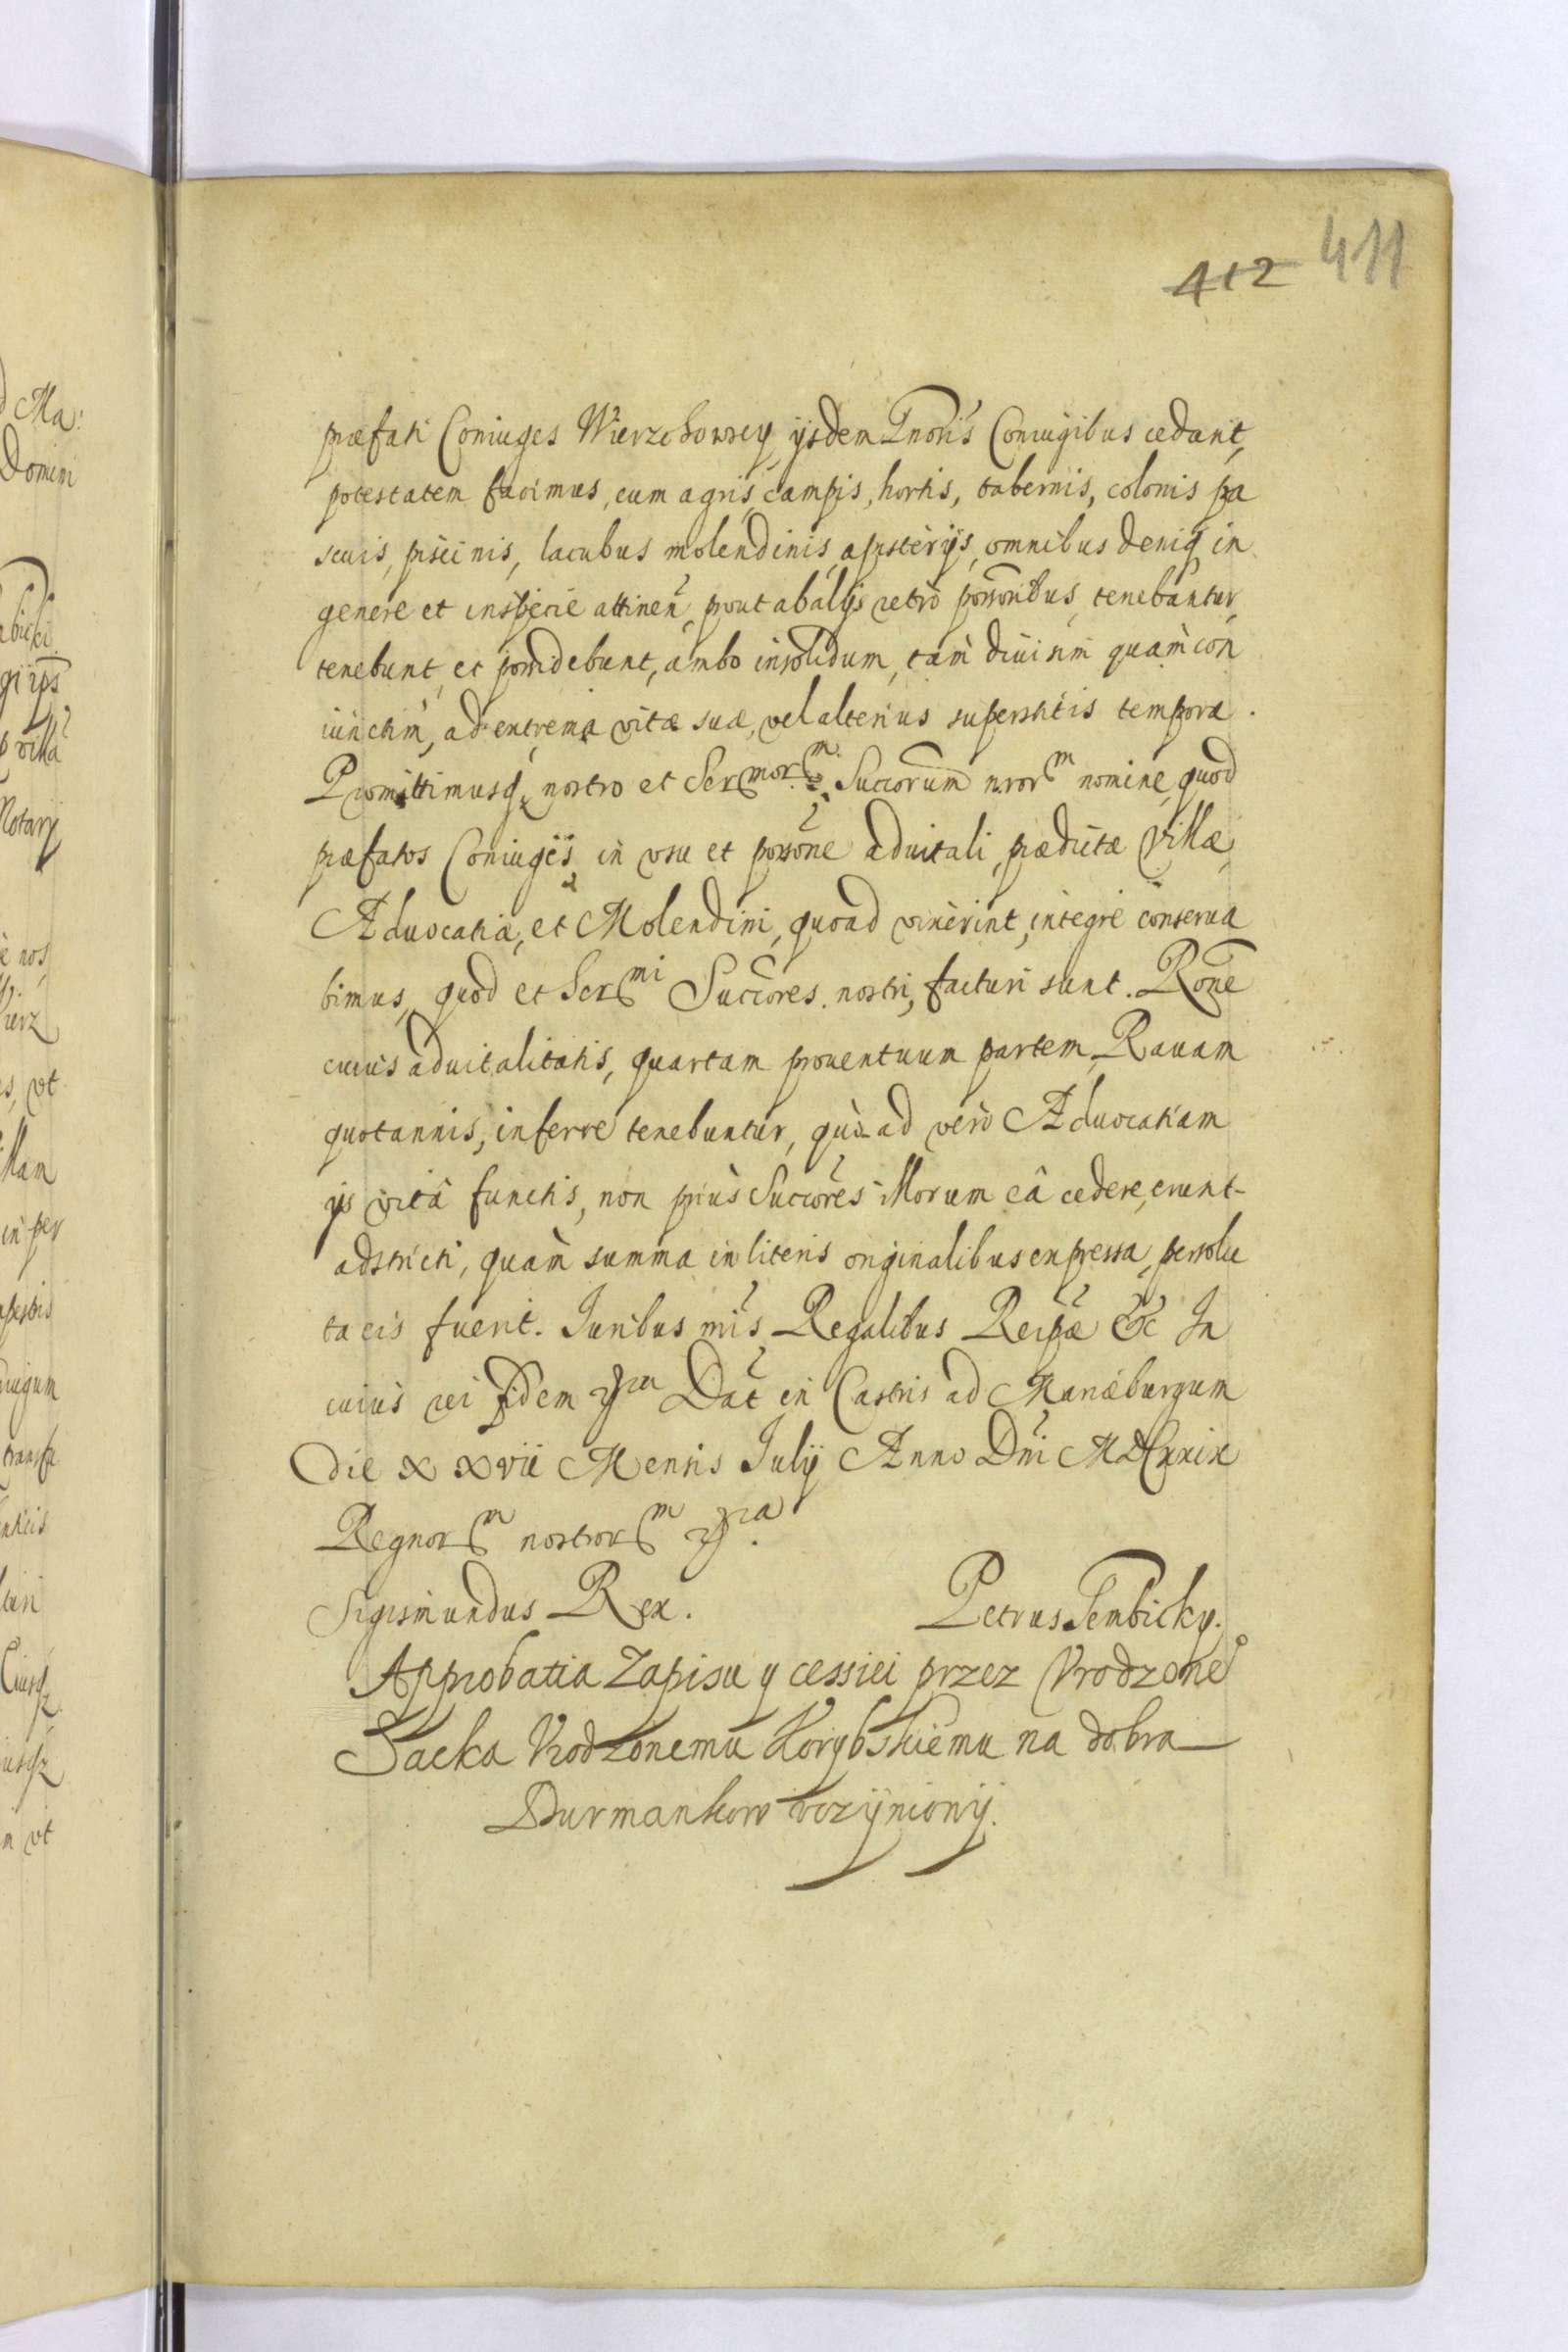 412 411
præfati Coniuges Wierzchowscy, ijsdem Gnosis Coniugibus cedant,
potestatem facimus, cum agris, campis, hortis, tabernis, colonis pa
scuis, piscinis, lacubus molendinis, apisterijs, omnibus deniq; in
genere et in specie attinen, prout ab alijs retrò possoribus, tenebantur,
tenebunt, et possidebunt, ambo insolidum, tam diuisim quam con
iunctim, ad extrema vitæ suæ, vel alterius superstitis tempora.
Promittimusq;, nostro et Sermor̄m Succorum nrorm nomine, quod
præfatos Coniuges, in vsu et possone aduitali, prædictæ Villæ,
Aduocatiæ, et Molendini, quoad vixerint, integre conserua
bimus, quod et Sermi Succores nostri, facturi sunt. Rone
cuius aduitalitatis, quartam prouentuum partem, Rauam
quotannis, inferre tenebuntur, quò ad verò Aduocatiam
ijs vitâ functis, non prius Succores illorum eâ cedere, erunt
adstricti, quàm summa in literis originalibus expressa, persolu
ta eis fuerit. Iuribus nris Regalibus Reipæ &c In
cuius rei fidem Dat in Castris ad Mariæburgum
Die xxvii Mensis Iulij Anno Dni MDCxxix
Regnorm nostrorm
Sigismundus Rex. Petrus Gembicky.
Approbatia Zapisu y cessiei przez Vrodzone°
Sacka Vrodzonemu Korybskiemu na dobra
Durmankow vczyniony.
Ma:
Domini
villa
Notarij
nos
Wierz
vt
in per
transfu
vt